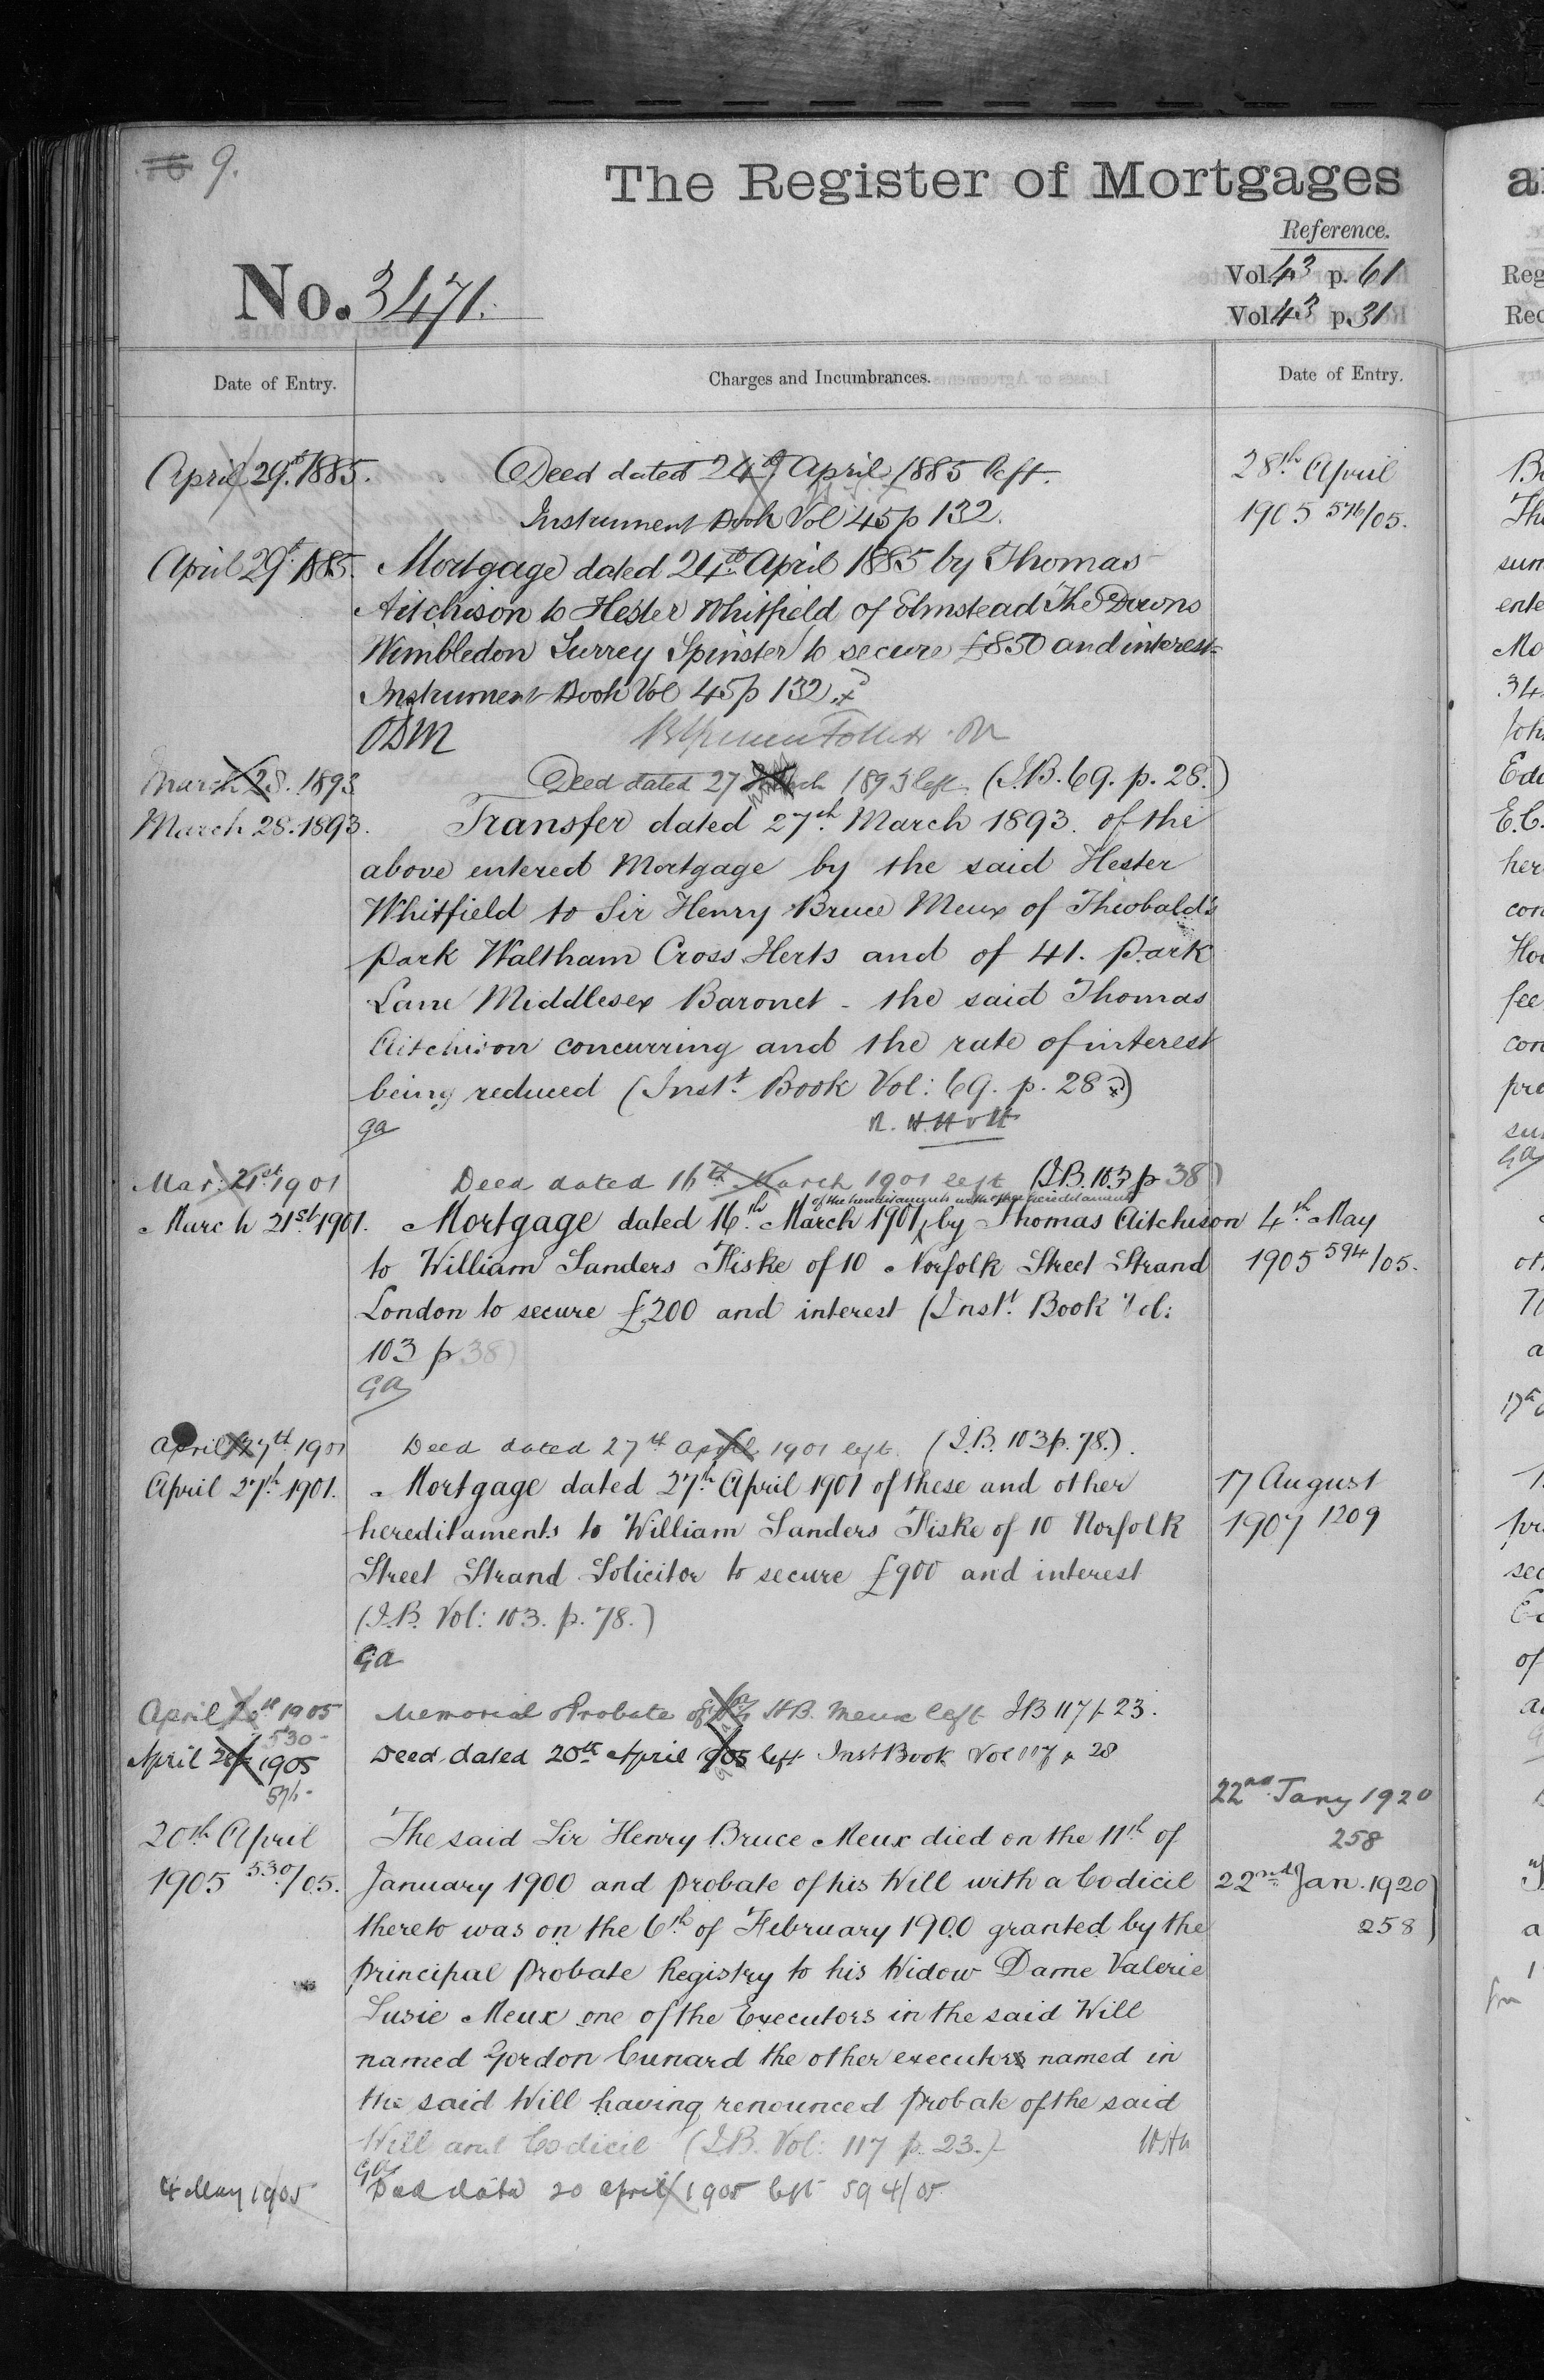 9.
The Register of Mortgages
Reference.
No. 3471.
Vol. 43 p. 61
Vol. 43 p. 31
Date of Entry.
Charges and Incumbrances.
Date of Entry.
April 29th. 1885.
Deed dated 24th April 1885 left.
28th April
Instrument Book Vol 45 p 132.
1905 576/05.
April 29th 1885.
Mortgage dated 24th April 1885 by Thomas
Aitchison to Hester Whitfield of Elmstead The Downs
Wimbledon Surrey Spinster to secure £850 and interest
Instrument Book Vol 45 p 132
March 28. 1893
Deed dated 27 March 1893 left. (I.B. 69. p. 28.)
March 28. 1893.
Transfer dated 27th March 1893. of the
above entered Mortgage by the said Hester
Whitfield to Sir Henry Bruce Meux of Theobald's
Park Waltham Cross Herts and of 41. Park
Lane Middlesex Baronet - the said Thomas
Aitchison concurring and the rate of interest
being reduced (Inst. Book Vol: 69. p. 28)
ga
Mar. 21st. 1901
Deed dated 16th March 1901 left (I.B. 103 p 38)
of the hereditaments with other hereditaments
March 21st 1901.
Mortgage dated 16th March 1901 by Thomas Aitchison
4th May
to William Sanders Fiske of 10 Norfolk Street Strand
1905 594/05.
London to secure £200 and interest (Inst. Book Vol:
103 p 38)
GA
April 27th 1901
Deed dated 27th April 1901 left. (I.B. 103 p. 78.).
April 27th 1901.
Mortgage dated 27th April 1901 of these and other
17 August
hereditaments to William Sanders Fiske of 10 Norfolk
1907 1209
Street Strand Solicitor to secure £900 and interest
(I.B. Vol: 103. p. 78.)
GA
April 20th 1905
530
Memorial Probate of Sir H.B. Meux left IB 117 p 23.
April 1905
Deed dated 20th April 1905 left Inst Book Vol 117 p 28
22nd Jany 1920
258
20th April
The said Sir Henry Bruce Meux died on the 11th of
1905 530/05.
January 1900 and probate of his Will with a Codicil
22nd Jan. 1920
thereto was on the 6th of February 1900 granted by the
258
Principal Probate Registry to his Widow Dame Valerie
Susie Meux one of the Executors in the said Will
named Gordon Cunard the other executor named in
the said Will having renounced probate of the said
Will and Codicil (I.B. Vol: 117 p. 23.)
GA
4 May 1905
Deed dated 20 April 1905 left 594/05